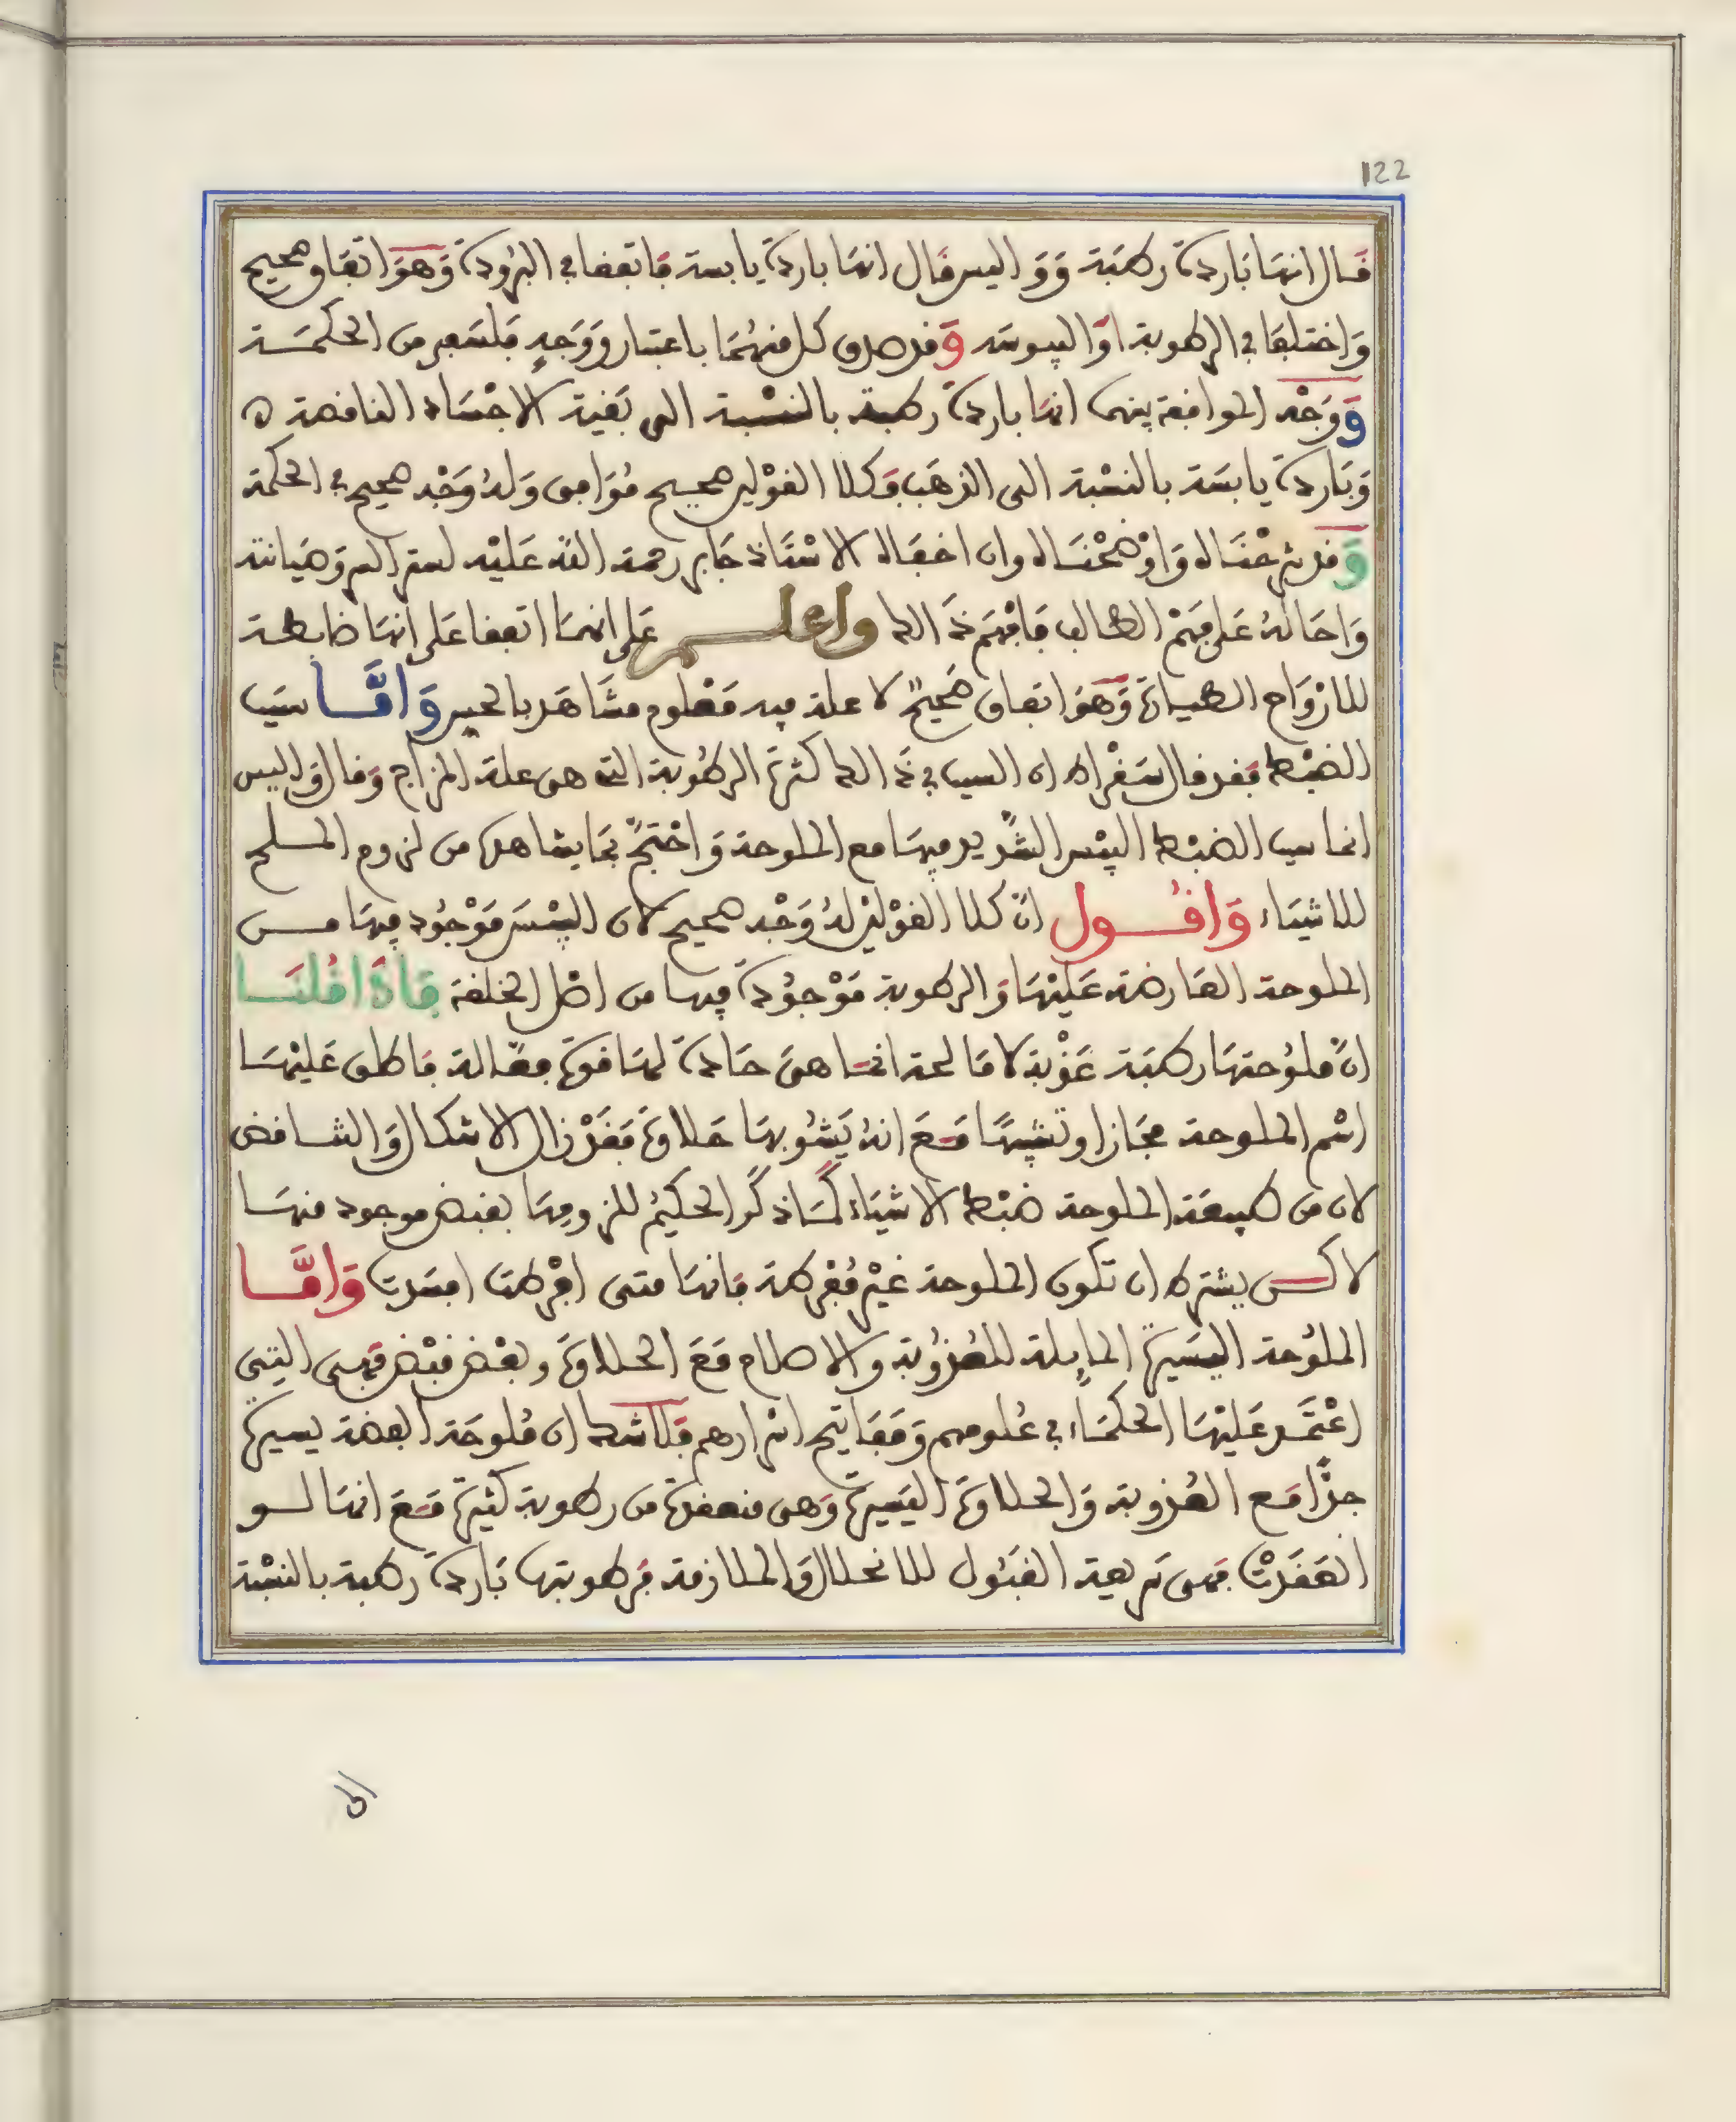 122
فال انها باردة رطبة وو اليس فال انها باردة يابسة فاتففا في البرودة وهو اتفاو صحيح
واختلفا في الرطوبة او اليبوسه وفد صدق كل منهما باعتبار ووجه فلسفي من الحكمة
ووجه الموافعة بينهما انها باردة رطبة بالنسبة الى بفية الاجساد النافصة
وباردة يابسة بالنسبة الى الذهب وكلا الفولين صحيح موافق وله وجه صحيح في الحكمة
وفد شرحناه واوضحناه وان اخفاه الاستاذ جابر رحمة الله عليه لستر السر وصيانته
واحاله على فهم الطالب فافهم ذالك واعلم على انهما اتففا على انها ضابطة
للازواح الطيارة وهو اتفاق صحيح لا علة فيه معلوم مشاهد بالحس واما سبب
الضبط ففد فال سفراط ان السبب في ذالك كثرة الرطوبة التي هي علة المزاج وفال واليس
انما سبب الضبط اليبس الشديد فيها مع الملوحة واحتج بما يشاهد من لزوم الملح
للاشياء وافول ان كلا الفولين له وجه صحيح لان اليبس موجود فيها من
الملوحة العارضة عليها والرطوبة موجودة فيها من اصل الخلفة فاذا فلنا
ان ملوحتها رطبة عذبة لا مالحة انما هي حادة لها فوة فعالة فاطلق عليها
اسم الملوحة مجازا وتشبيها مع انه يشوبها حلاوة ففد زال الاشكال والتنافض
لان من طبيعة الملوحة ضبط الاشياء كما ذكر الحكيم للزومها بفبض موجود فيها
لاكن يشترط ان تكون الملوحة غير مفرطة فانها متى افرطت افسدت واما
الملوحة اليسيرة المايلة للعذوبة والاصلاح مع الحلاوة وبعض فبض فهي التي
اعتمد عليها الحكماء في علومهم ومفاتيح اسرارهم فلا شك ان ملوحة الفضة يسيرة
جدا مع العذوبة والحلاوة اليسيرة وهي منعفدة من رطوبة كثيرة مع انها لو
انعفدت فهي سريعة الفبول للانحلال والملازمة فرطوبتها باردة رطبة بالنسبة
الى